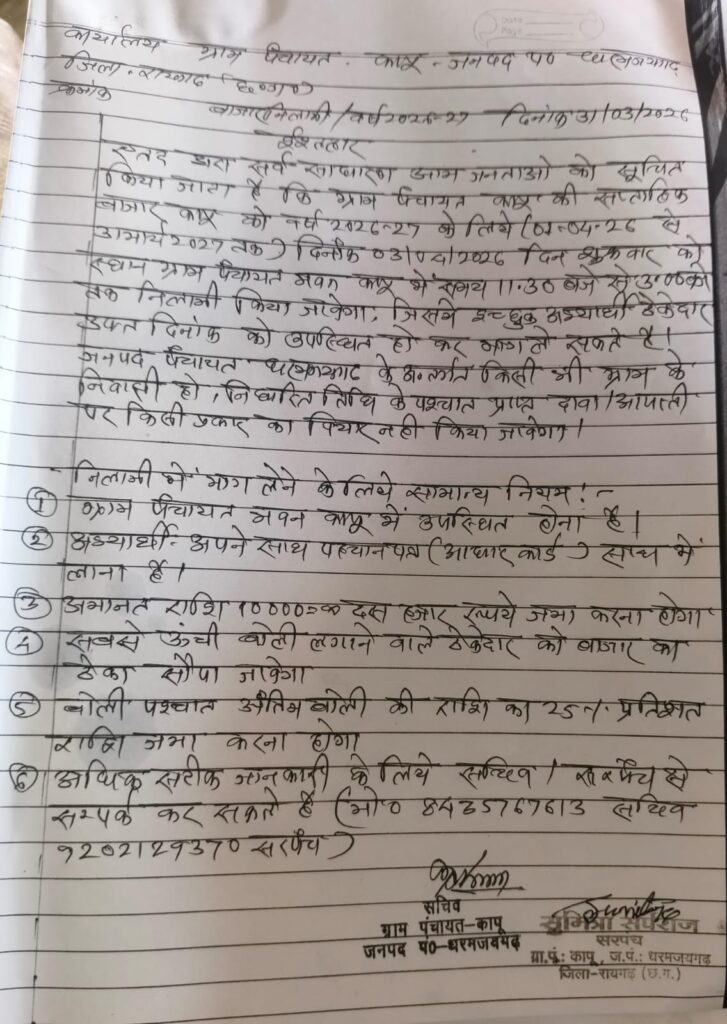 कार्यालय ग्राम पंचायत. कापू - जनपद पं० धरमजयगढ़
जिला - रायगढ़ (छ०ग०)
क्रमांक
बाजार निलामी / वर्ष 2026-27 दिनांक 31/03/2026
इश्तहार
एतद द्वारा सर्व साधारण आम जनताओ को सूचित
किया जाता है कि ग्राम पंचायत कापू की सप्ताहिक
बाजार कापू को वर्ष 2026-27 के लिये (01-04-26 से
31 मार्च 2027 तक) दिनाँक 03/04/2026 दिन शुक्रवार को
स्थान ग्राम पंचायत भवन कापू में समय 11.30 बजे से 3.00 बजे
तक निलामी किया जावेगा, जिसमे इच्छुक अभ्यार्थी ठेकेदार
उक्त दिनांक को उपस्थित हो कर भाग ले सकते है।
जनपद पंचायत धरमजयगढ़ के अन्तर्गत किसी भी ग्राम के
निवासी हो, निर्धारित तिथि के पश्चात प्राप्त दावा / आपाती
पर किसी प्रकार का विचार नही किया जावेगा।
निलामी में भाग लेने के लिये सामान्य नियम :-
① ग्राम पंचायत भवन कापू में उपस्थित होना है।
② अभ्यार्थी - अपने साथ पहचान पत्र (आधार कार्ड) साथ में
लाना है।
③ अमानत राशि 10000=00 दस हजार रूपये जमा करना होगा
④ सबसे ऊंची बोली लगाने वाले ठेकेदार को बाजार का
ठेका सौपा जावेगा
⑤ बोली पश्चात अंतिम बोली की राशि का 25% प्रतिशत
राशि जमा करना होगा
⑥ अधिक सटीक जानकारी के लिये सचिव / सरपंच से
सम्पर्क कर सकते है (मो० 8435767613 सचिव
9202129370 सरपंच)
सचिव
ग्राम पंचायत-कापू
जनपद पं०-धरमजयगढ़
सरपंच
ग्रा.पं.: कापू, ज.पं.: धरमजयगढ़
जिला-रायगढ़ (छ.ग.)